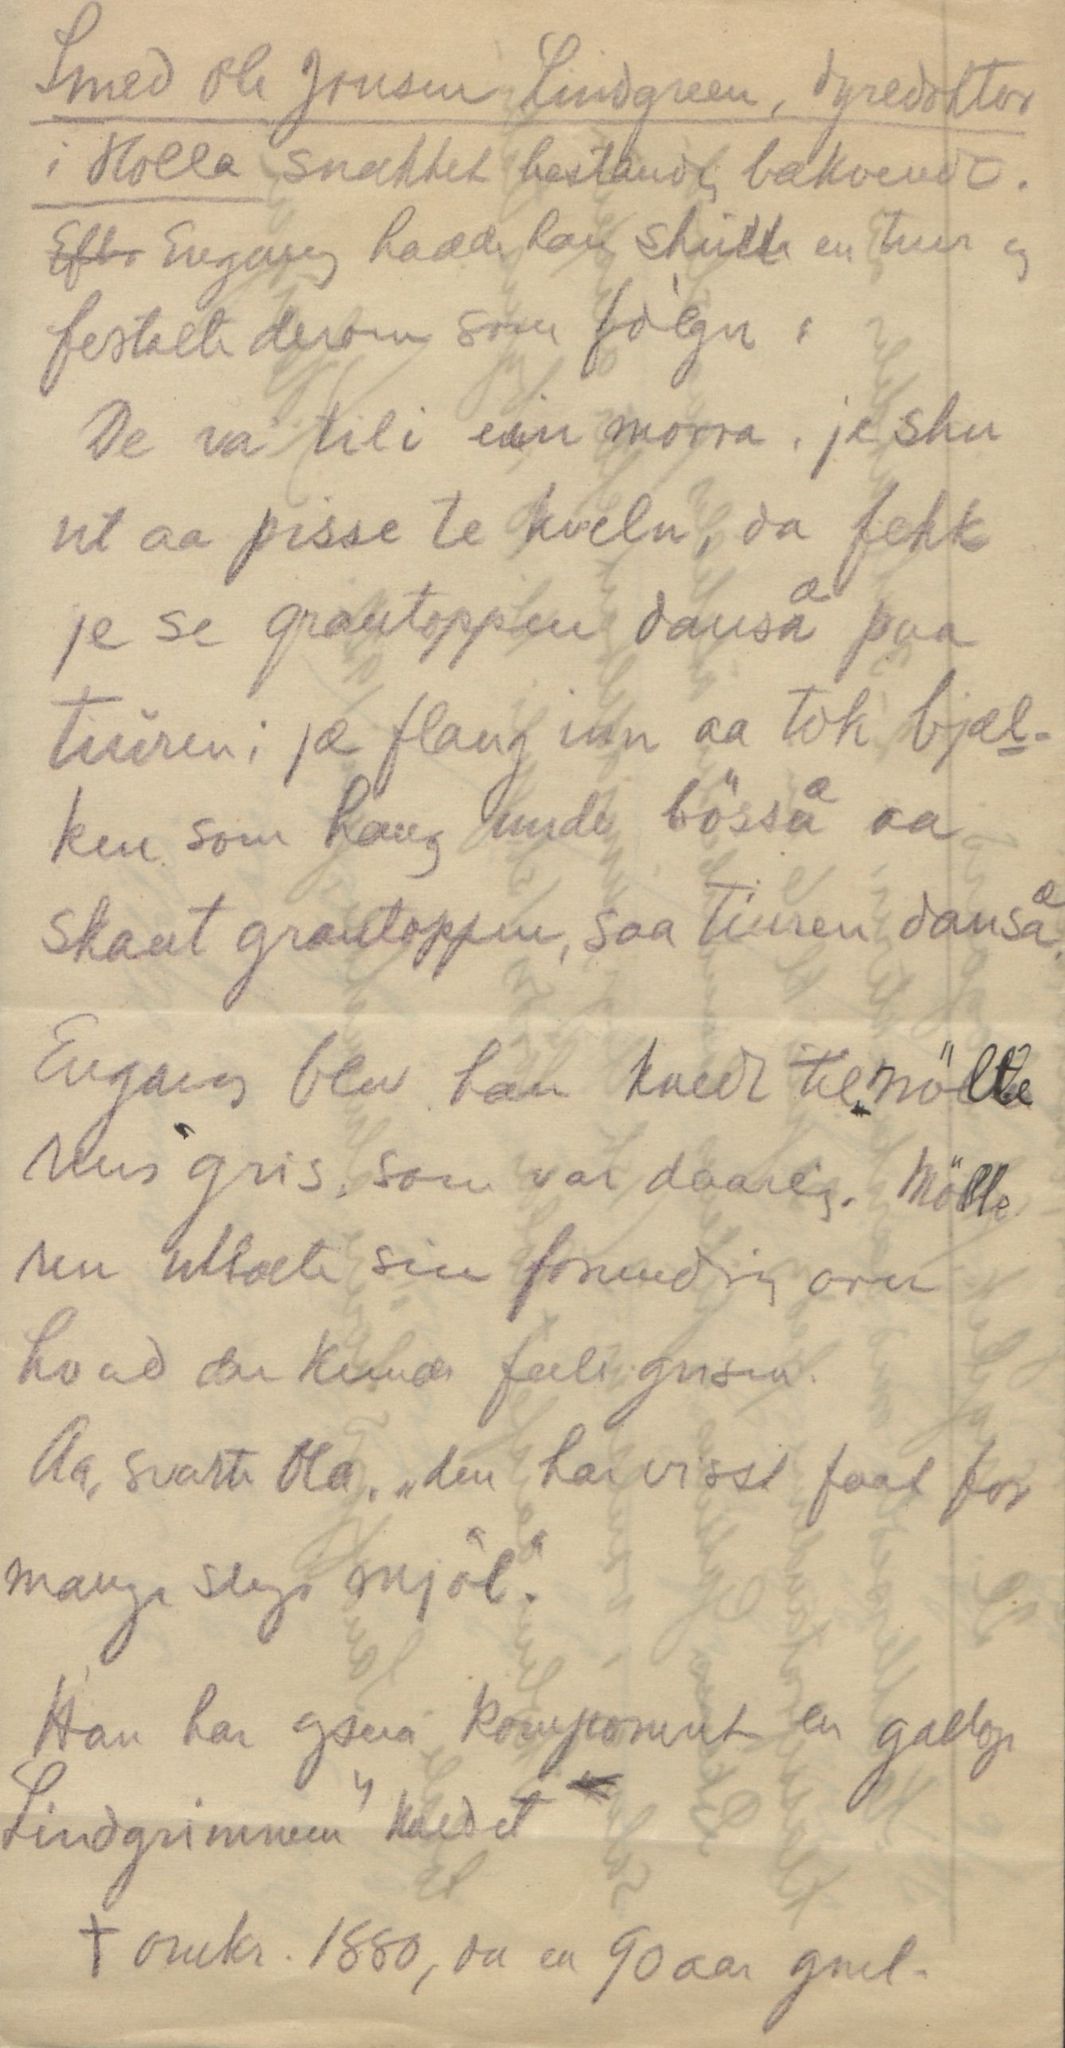 Smed Ole Jonsen Lindgreen, dyredoktor
i Holla snakket bestandig bakvendt.
Efter Engang hadde han skutt en tiur og
fortalte derom som følger:
De va tili ein morra, je sku
ut aa pisse te kveln, da fekk
je se grantoppen dansa paa
tiuren; je flaug inn aa tok bjæl-
ken som haug unde bössa aa
skaut grantoppen, saa tiuren dansa.
Engang blev han kaldt til mölle
rens gris, som var daarlig. Mölle
ren uttalte sin forundring over
hvad der kunde feile grisen.
Aa, svarte Ola, "den har visst faat for
mange slags mjöl".
Han har ogsaa komponert en gallop
Lindgrinnen" kaldet
† omkr. 1880, da en 90 aar gml.